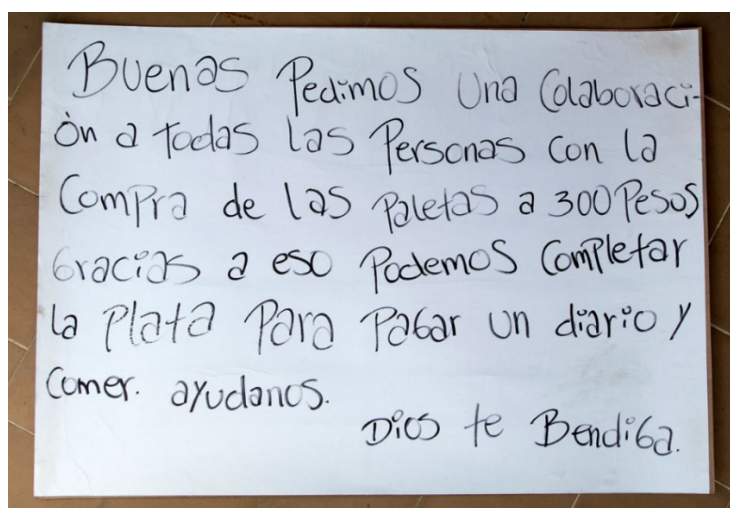 Buenas Pedimos una Colaboraci-
ón a todas las Personas con la
Compra de las Paletas a 300 Pesos
Gracias a eso Podemos Completar
la Plata Para Pagar un diario y
Comer. ayudanos.
Dios te Bendiga.